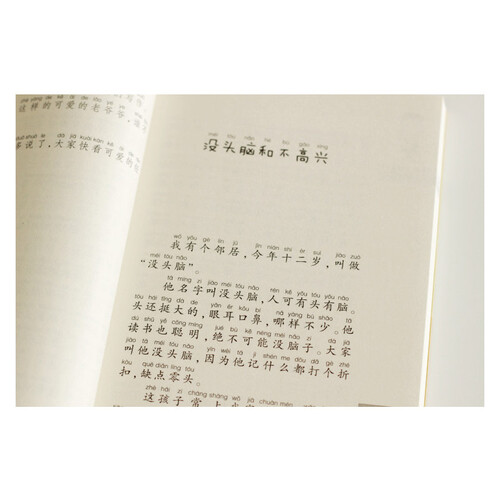 zhè yàng de kě ài de lǎo yé
这样的可爱的老爷爷,
duō shuō le dà jiā kuài kàn kě ài de
多说了,大家快看可爱的
méi tóu nǎo hé bù gāo xìng
没头脑和不高兴
wǒ yǒu gè lín jū jīn nián shí èr suì jiào zuò
我有个邻居,今年十二岁,叫做
méi tóu nǎo
“没头脑”。
tā míng zi jiào méi tóu nǎo rén kě yǒu tóu yǒu nǎo
他名字叫没头脑,人可有头有脑。
tóu hái tǐng dà de yǎn ěr kǒu bí nǎ yàng bù shǎo tā
头还挺大的,眼耳口鼻,哪样不少。他
dú shū yě cōng míng jué bù kě néng méi nǎo zi dà jiā
读书也聪明,绝不可能没脑子。大家
jiào tā méi tóu nǎo yīn wèi tā jì shén me dōu dǎ gè zhé
叫他没头脑,因为他记什么都打个折
kòu quē diǎn líng tóu
扣,缺点零头。
zhè hái zi cháng shàng wǒ jiā chuàn mén
这孩子常上我家